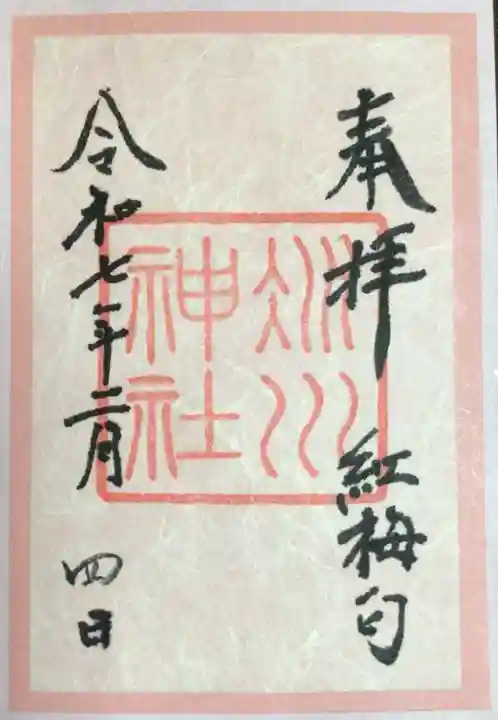 奉拝 紅梅句
冰川
神社
令和七年二月 四日